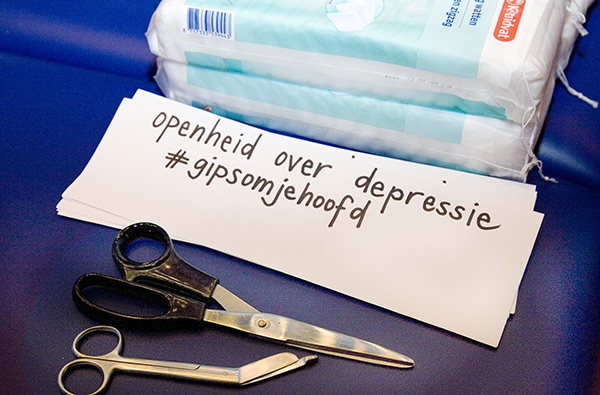 Kruidvat
watten
zigzag
openheid over depressie
#gipsomjehoofd